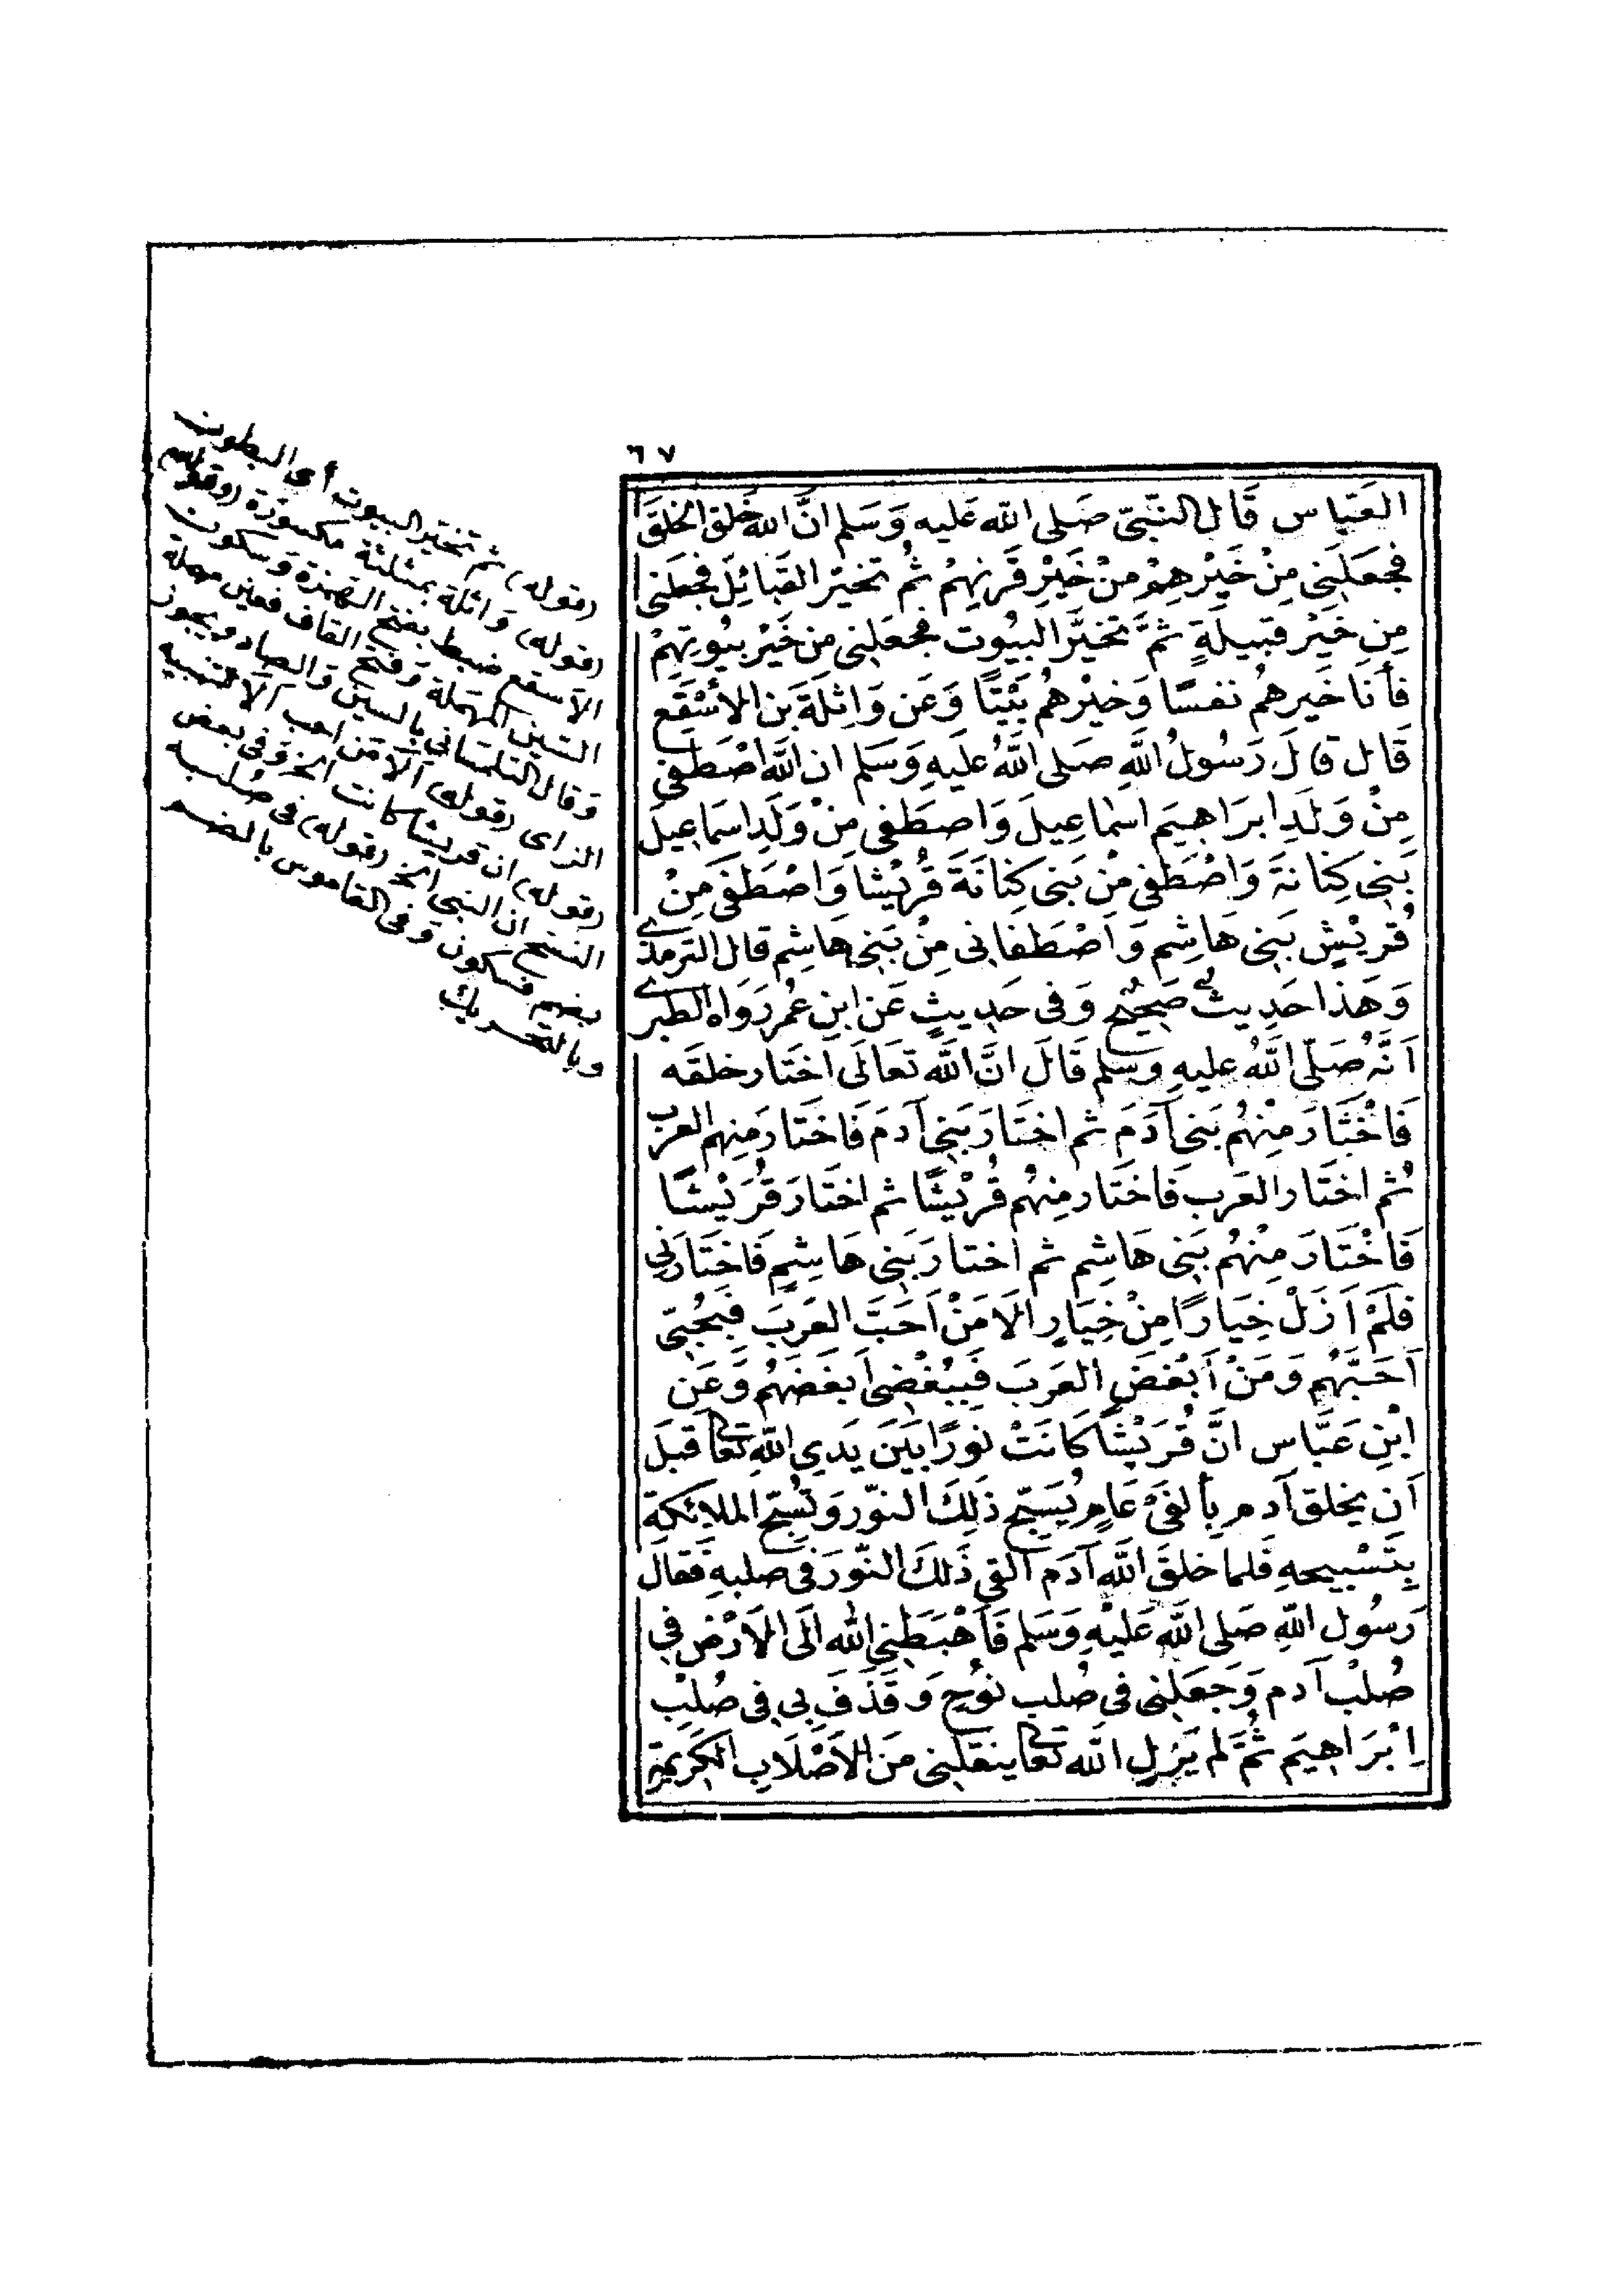 ٦٧
العَبّاس قَالَ النَّبِىّ صَلى الله عَليه وَسَلم انَّ اللهَ خَلق الخلقَ
فجَعَلَنِى مِنْ خَيْرِهِمْ مِنْ خَيْرِ قَرنِهِمْ ثُم تخيّر القَبائِلَ فجَعَلَنى
مِن خَيْر قبيلَةٍ ثمَّ تخيَّر البيُوت فجعَلنى من خَيْر بيُوتِهِمْ
فأنَا خَيرهُم نفسًا وَخيْرهُم بَيْتًا وَعَن وَاثِلَةَ بَن الأسْقَع
قَال قالَ رَسُولُ اللَّهِ صَلى اللَّهُ عَليَهِ وَسَلم ان اللَّه اصْطَفى
مِنْ وَلَدِ ابرَاهِيَم اسْماعِيلَ وَاصطَفى مِنْ وَلَدِ اسمَاعِيلَ
بَنِى كِنَانَةَ وَاصْطَفى مِنْ بَنى كِنَانَةَ قُرَيْشا وَاصْطَفَى مِنْ
قُرَيْشٍ بَنِى هَاشِم وَاصْطَفانى مِنْ بَنِى هاشِم قال الترمذى
وَهَذا حَدِيثٌ صَحِيحٌ وَفى حَدِيثٍ عَن ابنِ عُمر رَوَاه الطبرى
اَنَّهُ صَلّى اللَّهُ عليهِ وسلم قَالَ انَّ اللَّه تعَالَى اختَار خلقَه
فَاخْتَارَ مِنْهُم بَنى آدَمَ ثم اختَارَ بَنِى آدمَ فَاختَارَ مِنهم العرب
ثُم اختَار العَرَب فَاختَار مِنهُم قُرَيْشًا ثم اختَارَ قُرَيْشًا
فَاخْتَارَ مِنْهُم بَنِى هَاشِم ثم اختارَ بَنِى هاشِمٍ فَاختَارَنِى
فلَمْ اَزَلْ خِيَارًا مِنْ خِيَارٍ الَا مَنْ اَحَبَّ العَرَبَ فَبحُبِّى
اَحَبَّهُم وَمَنْ اَبْغَضَ العَرَبَ فَبِبُغْضِى اَبغَضهُم وَعَن
ابْنِ عَبَّاس انَّ قُرَيْشًا كَانَتْ نورًا بَيَن يَدِى اللَّهِ تعَالى قبلَ
اَن يخلق آدم بِألفَىْ عَامٍ يُسَبِّح ذَلِكَ النّور وَتُسَبّح الملائكة
بِتَسْبيحهِ فَلما خلقَ اللَّه آدَم القى ذَلكَ النّورَ فى صلبهِ فقال
رَسُول اللَّهِ صَلى اللَّه عَلَيْهِ وَسَلم فَاَهْبَطَنِى الله الَى الاَرْض فِى
صُلْب آدم وَجعَلنِى فى صُلبِ نوُحٍ وَقَذَفَ بِى فِى صُلْبِ
اِبْرَاهِيَم ثُمَّ لم يَزلِ اللَّه تعَالى ينقلنِى مَن الاَصْلَابِ الكَرِيمَة
(قوله) ثم تخير البيوت أى البطون
(قوله) وَاثلة بمثلثة مكسورة (وقوله)
الاَسقع ضبط بفتح الهمزة وَسكون
السّين المهملة وَفتح القاف فعين مهملة
وَقال التلمسَانى بالسين وَالصاد ويجوز
الزاى (قوله) اَلَا مَن احب اَلَا للتنبيه
(قوله) ان قريشا كانت الخ وَفى بعض
النسخ ان النبى الخ (قوله) فى صُلبه
بضم فسكون وَفى القاموس بالضم
وبالتحريك